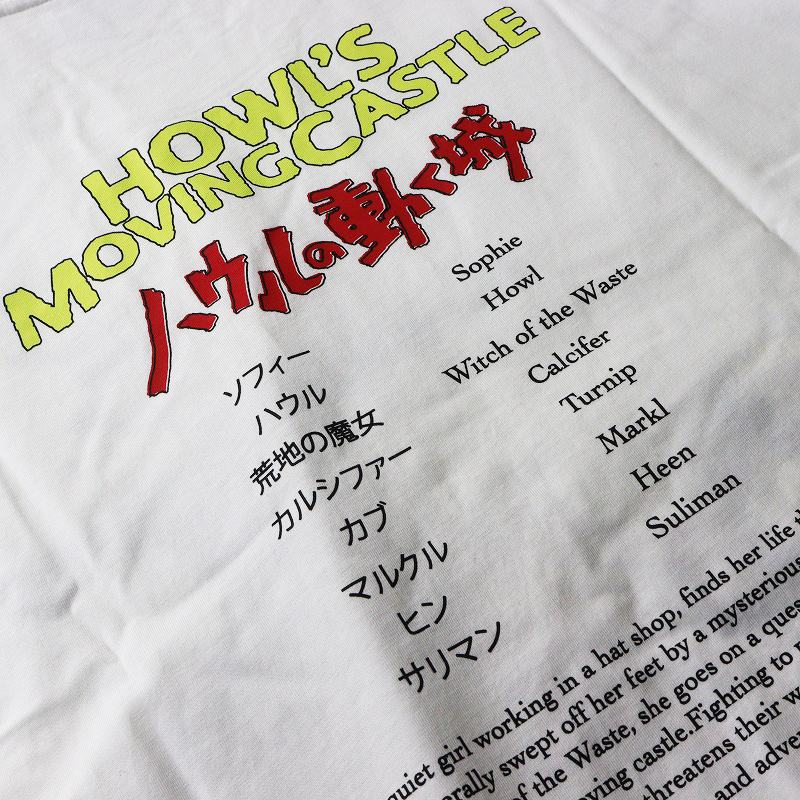 HOWL'S
MOVING CASTLE
ハウルの動く城
ソフィー Sophie
ハウル Howl
荒地の魔女 Witch of the Waste
カルシファー Calcifer
カブ Turnip
マルクル Markl
ヒン Heen
サリマン Suliman
quiet girl working in a hat shop, finds her life
swept off her feet by a mysterious
of the Waste, she goes on a
castle.Fighting to
threatens their
and